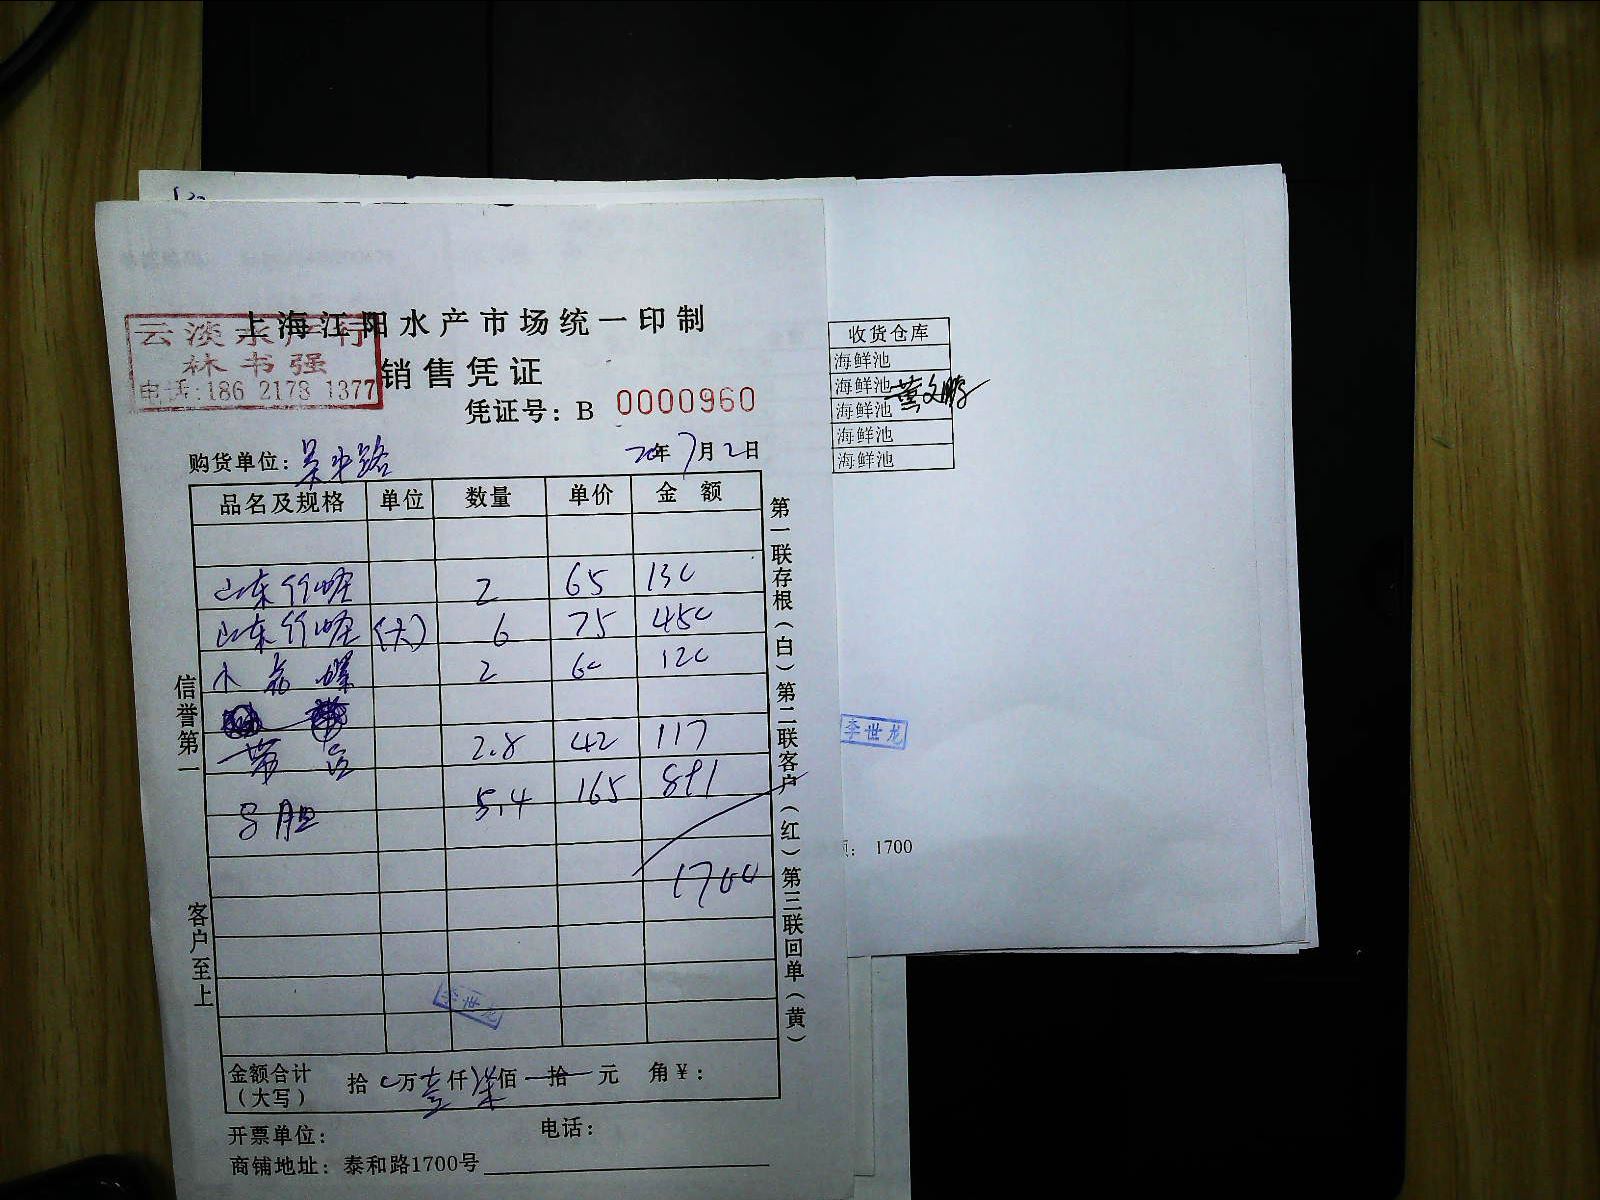 上海江阳水产市场统一印制
云淡水产行
林书强
电话:186 2173 1377
销售凭证
凭证号: B 0000960
购货单位: 吴中路 20年7月2日
品名及规格 单位 数量 单价 金额
山东竹蛏 2 65 130
山东竹蛏 (大) 6 75 450
小 螺 2 60 120
2.8 42 117
胆 5.4 165 891
1700
李世龙
金额合计(大写) 拾 万壹仟柒佰 拾 元 角¥:
开票单位: 电话:
商铺地址: 泰和路1700号
信誉第一
客户至上
第一联存根(白)第二联客户(红)第三联回单(黄)
收货仓库
海鲜池
海鲜池
海鲜池
海鲜池
海鲜池
李世龙
: 1700